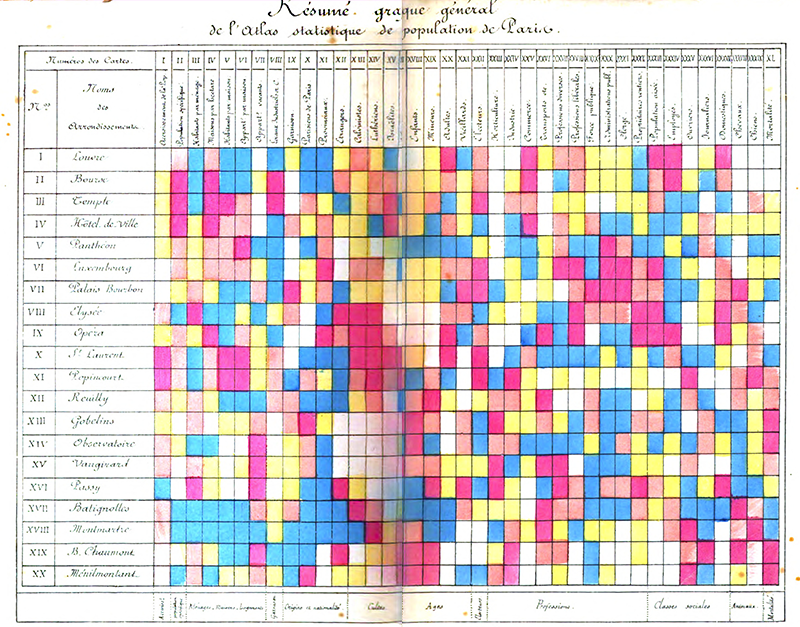 Résumé graque général
de l'Atlas statistique de population de Paris.
Numéros des Cartes. I II III IV V VI VII VIII IX X XI XII XIII XIV XV XVIII XIX XX XXI XXII XXIII XXIV XXV XXVI XXVII XXVIII XXIX XXX XXXI XXXII XXXIII XXXIV XXXV XXXVI XXXVII XL
Nos
Noms
des
Arrondissements.
Population spécifique
Habitants par ménage
Maisons par hectare
Habitants par maison
Appartts par maison
Appartts vacants
Garnison
Parisiens de Paris
Provinciaux
Etrangers
Calvinistes
Luthériens
Israélites
Enfants
Mineurs
Adultes
Vieillards
Electeurs
Horticulture
Industrie
Commerce
Transports etc
Professions diverses
Professions libérales
Force publique
Administrations publ.
Clergé
Propriétaires rentiers
Population aisée
Employés
Ouvriers
Journaliers
Domestiques
Chevaux
Chiens
Mortalité
I Louvre
II Bourse
III Temple
IV Hôtel de Ville
V Panthéon
VI Luxembourg
VII Palais Bourbon
VIII Elysée
IX Opéra
X St Laurent
XI Popincourt
XII Reuilly
XIII Gobelins
XIV Observatoire
XV Vaugirard
XVI Passy
XVII Batignolles
XVIII Montmartre
XIX B. Chaumont
XX Ménilmontant
Ménages, Maisons, Logements
Garnison
Origine et nationalité
Cultes
Ages
Electeurs
Professions.
Classes sociales
Animaux
Mortalité